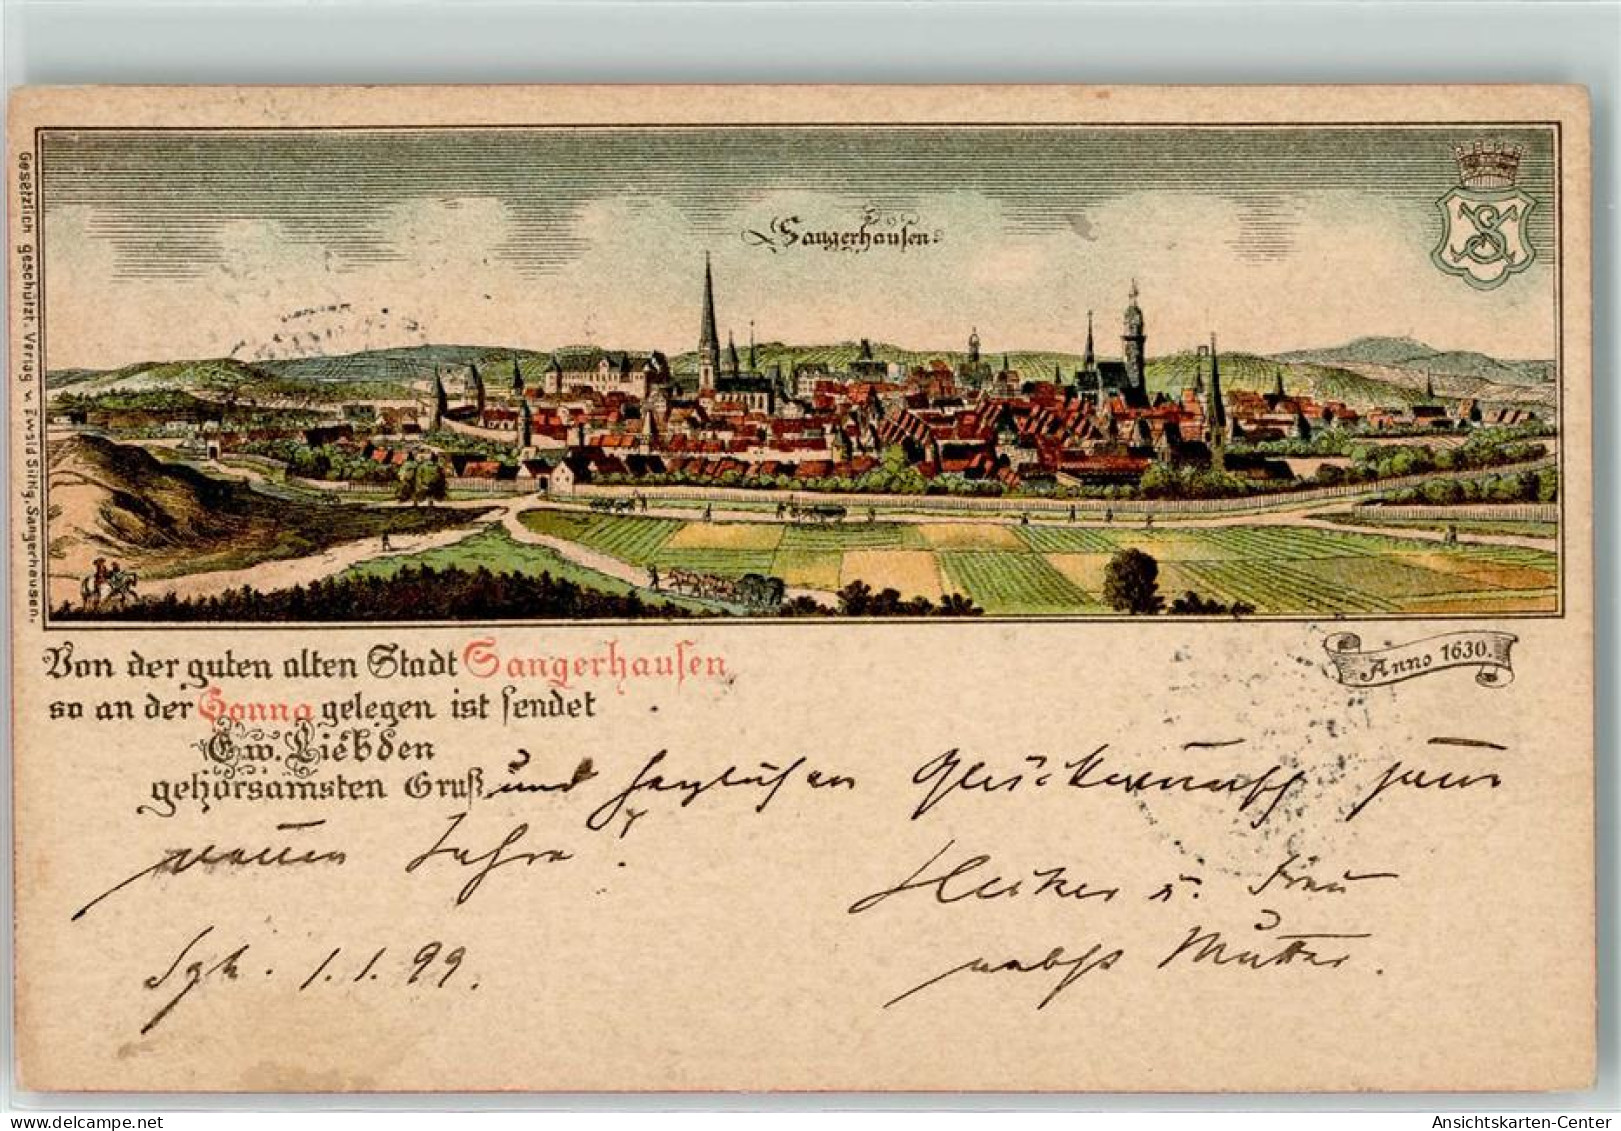 Sangerhausen
Gesetzlich geschützt. Verlag v. Ewald Sittig, Sangerhausen.
Von der guten alten Stadt Sangerhausen
so an der Gonna gelegen ist sendet
Ew. Liebden
gehorsamsten Gruß
Anno 1630.
und herzlichen Glückwunsch zum
neuen Jahre!
u. Frau
nebst Mutter.
Sgh. 1.1.99.
Ansichtskarten-Center